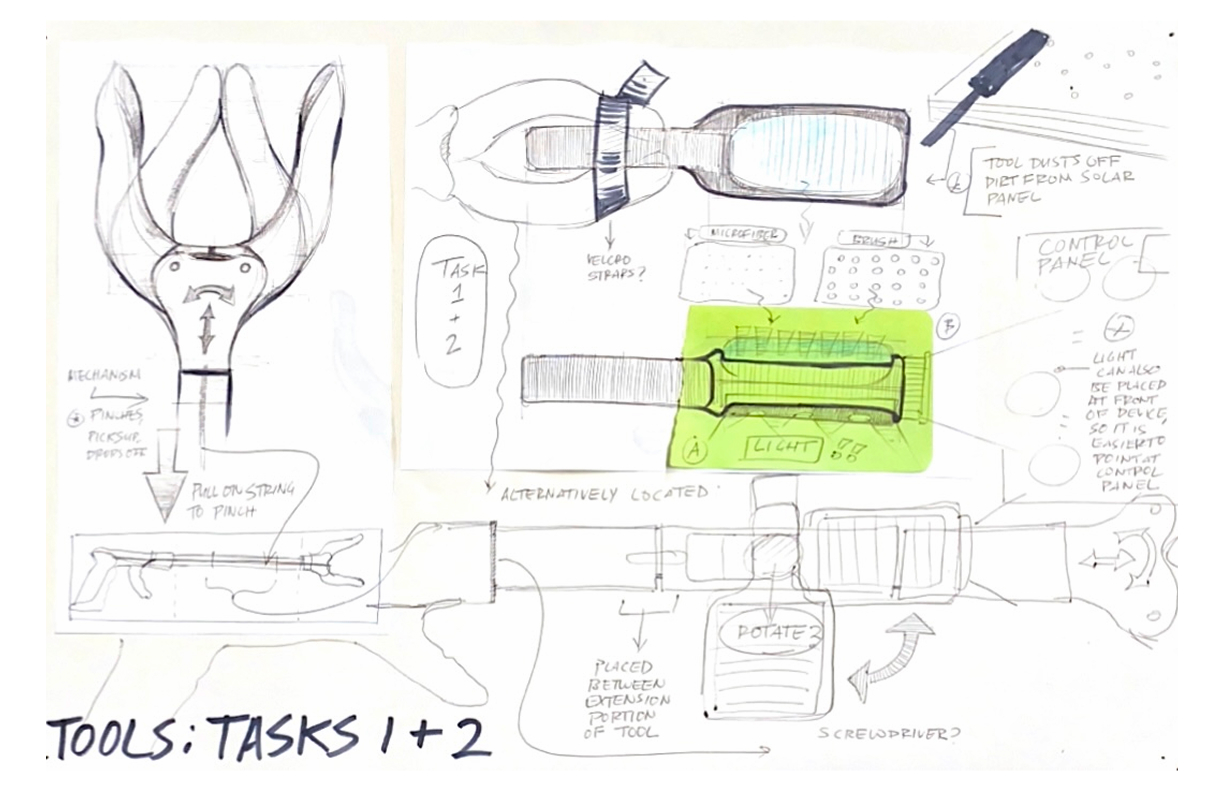 MECHANISM
* PINCHES,
PICKSUP,
DROPS OFF
PULL ON STRING
TO PINCH
TASK
1
+
2
VELCRO
STRAPS?
MICROFIBER
BRUSH
TOOL DUSTS OFF
DIRT FROM SOLAR
PANEL
CONTROL
PANEL
B
A
LIGHT
LIGHT
CAN ALSO
BE PLACED
AT FRONT
OF DEVICE,
SO IT IS
EASIER TO
POINT AT
CONTROL
PANEL
ALTERNATIVELY LOCATED
ROTATE?
PLACED
BETWEEN
EXTENSION
PORTION
OF TOOL
SCREWDRIVER?
TOOLS: TASKS 1+2